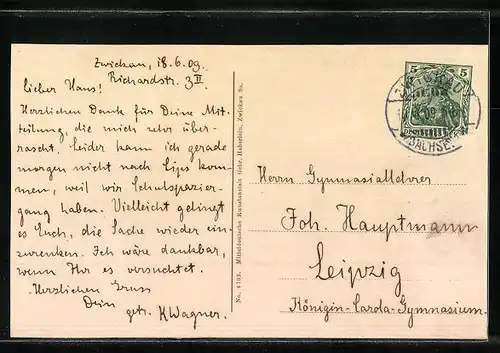 Zwickau, 18.6.09.
Richardstr. 3 II
lieber Hans!
Herzlichen Dank für Deine Mit-
teilung, die mich sehr über-
rascht. Leider kann ich gerade
morgen nicht nach Lips kom-
men, weil wir Schulspazier-
gang haben. Vielleicht gelingt
es Euch, die Sache wieder ein-
zurenken. Ich wäre dankbar,
wenn Ihr es versuchtet.
Herzlichen Gruss
Dein
getr. KWagner.
No. 4723. Mitteldeutsche Kunstanstalt Gebr. Haberlein, Zwickau Sa.
5 5
ZWICKAU
09
SACHSEN
Herrn Gymnasiallehrer
Joh. Hauptmann
Leipzig
Königin-Carola-Gymnasium.